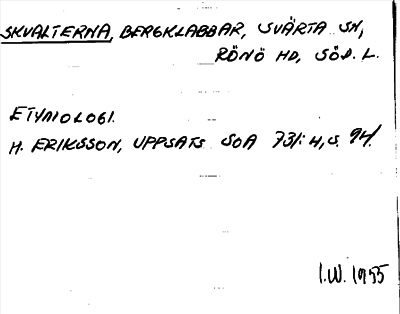 SKVALTERNA, BERGKLABBAR, SVÄRTA SN,
RÖNÖ HD, SÖD. L.
ETYMOLOGI.
H. ERIKSSON, UPPSATS SOA 731:4, S. 94.
I.W. 1955